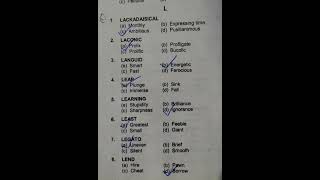 L
1 LACKADAISICAL
(a) Morbidly (b) Expressing
(c) Ambitious (d) Pusillanimous
2. LACONIC
(a) Prolix (b) Profligate
(c) Prolific (d) Bucolic
3. LANGUID
(a) Smart (b) Energetic
(c) Fast (d) Ferocious
4. LEAP
(a) Plunge (b) Sink
(c) Immerse (d) Fall
5. LEARNING
(a) Stupidity (b) Brilliance
(c) Sharpness (d) Ignorance
6. LEAST
(a) Greatest (b) Feeble
(c) Small (d) Giant
7. LEGATO
(a) Uneven (b) Brief
(c) Silent (d) Smooth
8. LEND
(a) Hire (b) Pawn
(c) Cheat (d) Borrow